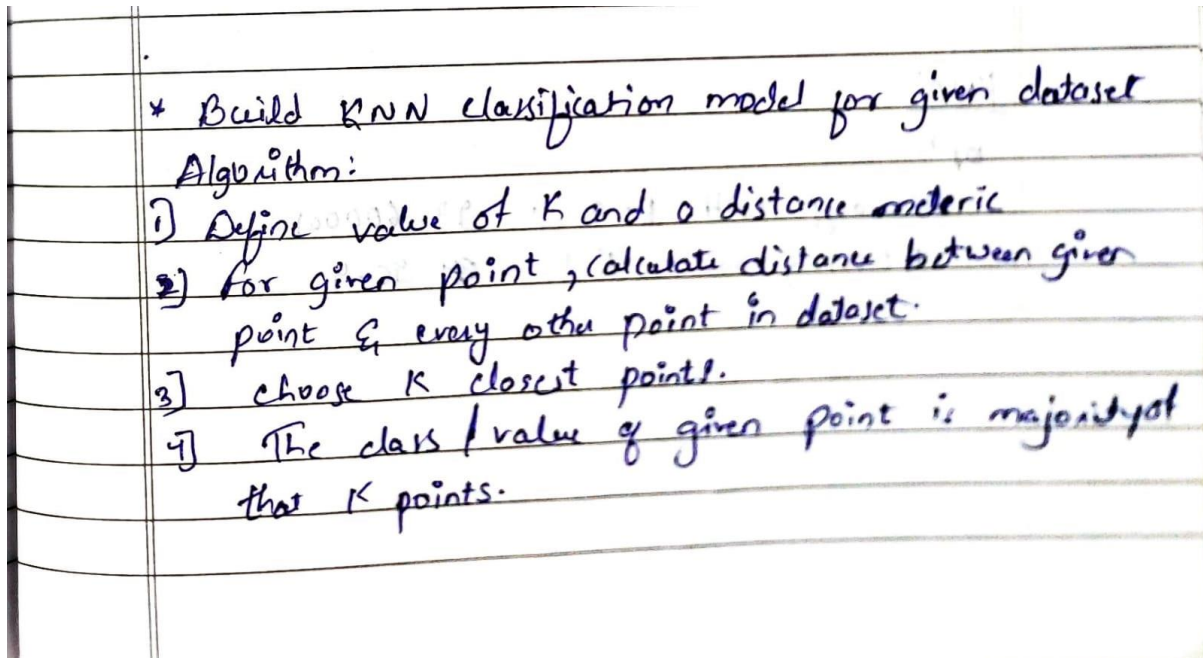 * Build KNN classification model for given dataset
Algorithm:
1) Define value of K and a distance meteric
2) for given point, calculate distance between given
point & every other point in dataset.
3] choose K closest points.
4] The class / value of given point is majority of
that K points.